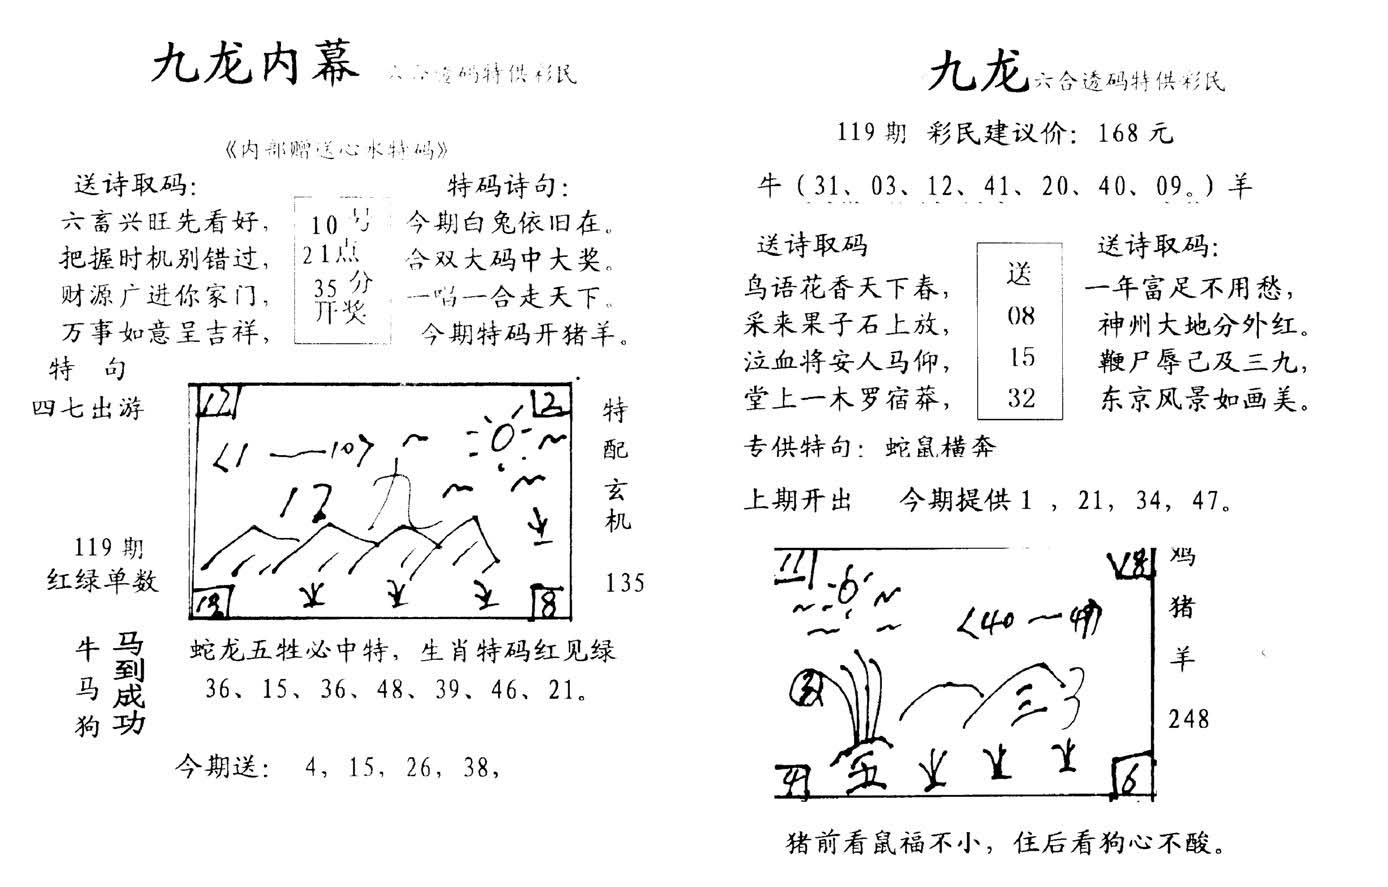 九龙内幕 六合透码特供彩民
《内部赠送心水特码》
送诗取码:
六畜兴旺先看好,
把握时机别错过,
财源广进你家门,
万事如意呈吉祥,
10号
21点
35分
开奖
特码诗句:
今期白兔依旧在。
合双大码中大奖。
一唱一合走天下。
今期特码开猪羊。
特 句
四七出游
119期
红绿单数
12
2
<1——10>
九
12
8
特
配
玄
机
135
牛
马
狗
马到成功
蛇龙五牲必中特, 生肖特码红见绿
36、15、36、48、39、46、21。
今期送: 4, 15, 26, 38,
九龙六合透码特供彩民
119期 彩民建议价: 168元
牛 ( 31、03、12、41、20、40、09。) 羊
送诗取码
鸟语花香天下春,
采来果子石上放,
泣血将安人马仰,
堂上一木罗宿莽,
送
08
15
32
送诗取码:
一年富足不用愁,
神州大地分外红。
鞭尸辱己及三九,
东京风景如画美。
专供特句: 蛇鼠横奔
上期开出 今期提供1 , 21, 34, 47。
11
18
<40—49>
三
4
五
6
鸡
猪
羊
248
猪前看鼠福不小, 住后看狗心不酸。